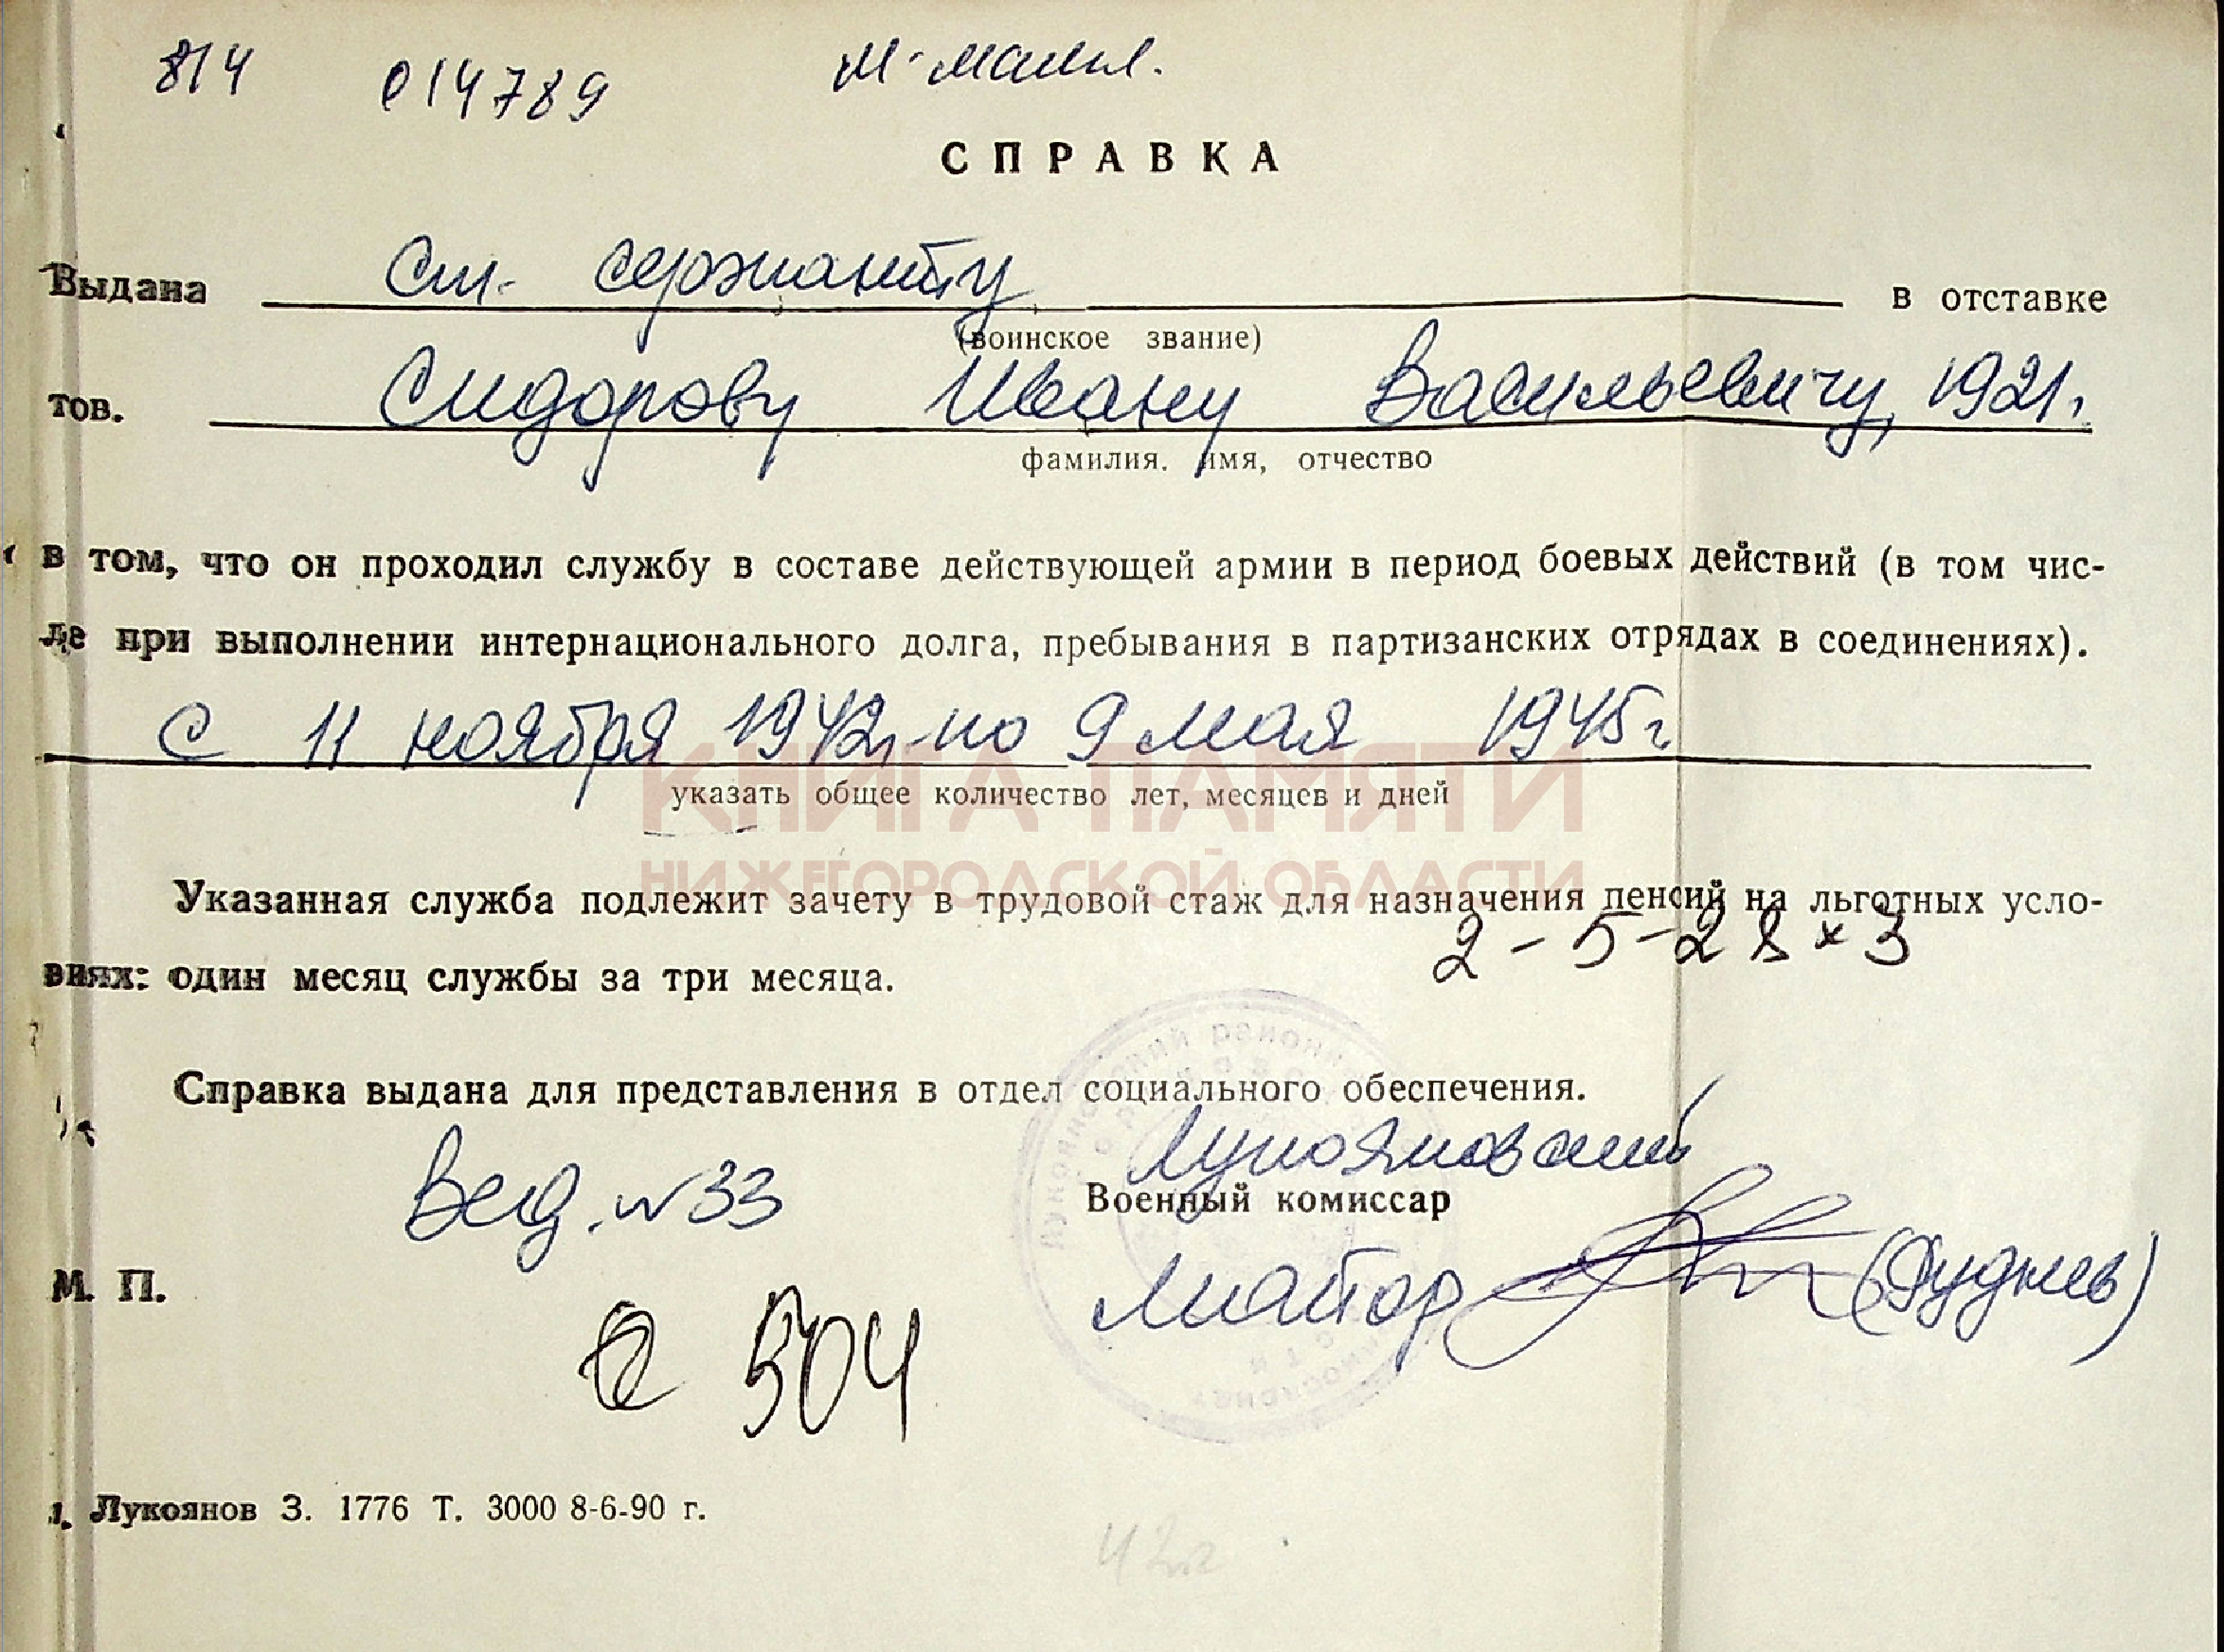 814 014789 М-Мамл.
СПРАВКА
Выдана Ст. сержанту в отставке
(воинское звание)
тов. Сидорову Ивану Васильевичу, 1921г.
фамилия. имя, отчество
в том, что он проходил службу в составе действующей армии в период боевых действий (в том чис-
ле при выполнении интернационального долга, пребывания в партизанских отрядах в соединениях).
с 11 ноября 1942г. по 9 мая 1945г
КНИГА ПАМЯТИ
указать общее количество лет, месяцев и дней
НИЖЕГОРОДСКОЙ ОБЛАСТИ
Указанная служба подлежит зачету в трудовой стаж для назначения пенсий на льготных усло-
виях: один месяц службы за три месяца.
2-5-28×3
Справка выдана для представления в отдел социального обеспечения.
Лукояновский
Вед. №33
Военный комиссар
М. П.
майор
504
Лукоянов З. 1776 Т. 3000 8-6-90 г.